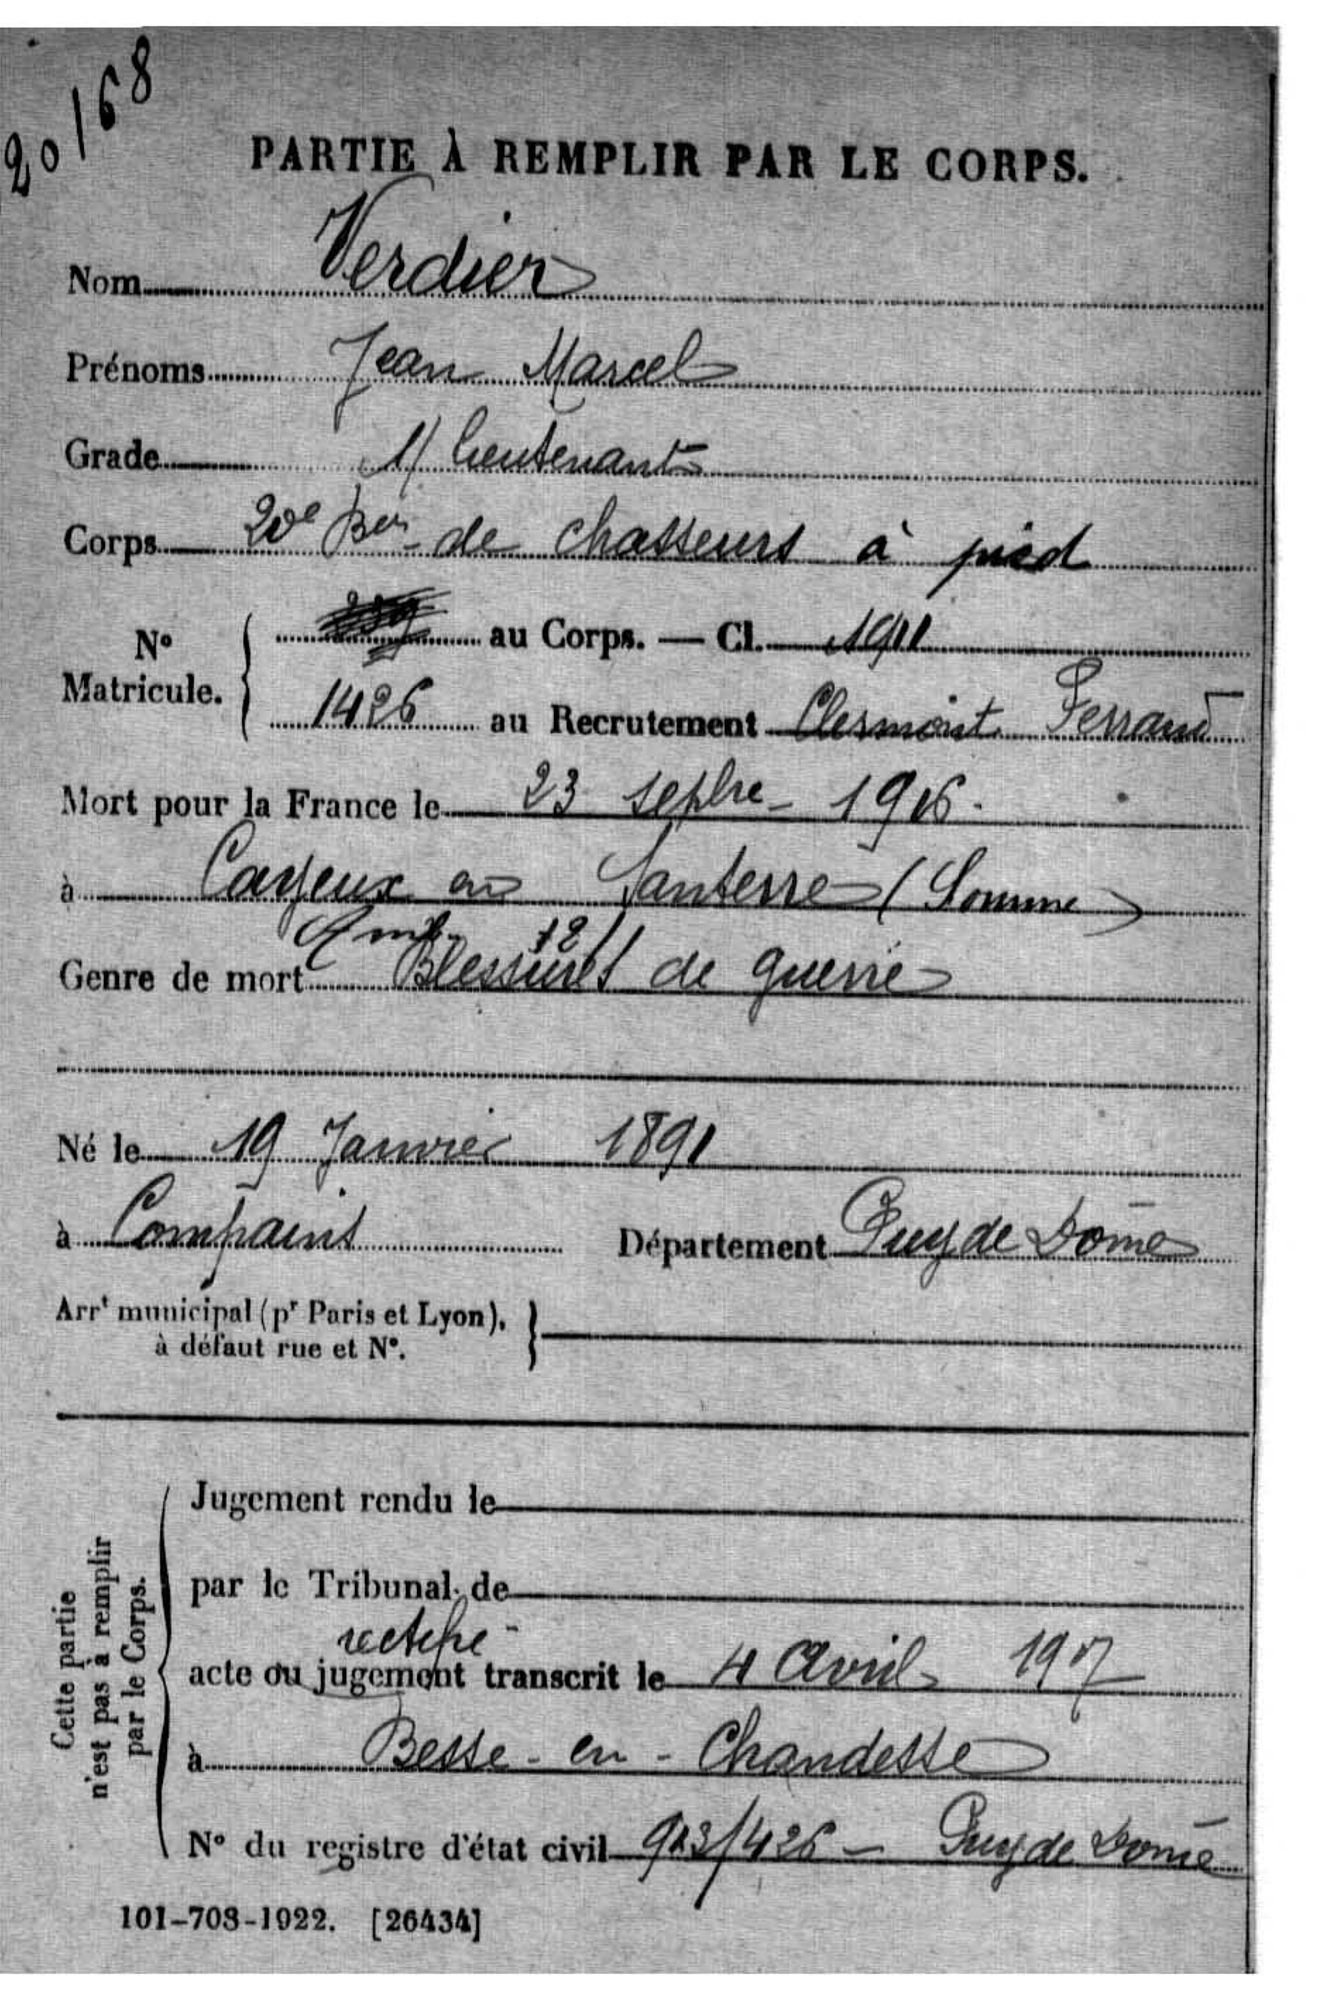 20168
PARTIE À REMPLIR PAR LE CORPS.
Nom Verdier
Prénoms Jean Marcel
Grade S/ lieutenant
Corps 20e Bon de chasseurs à pied
N° Matricule.
au Corps. — Cl. 1911
1426 au Recrutement Clermont Ferrand
Mort pour la France le 23 sepbre 1916.
à Cayeux en Santerre (Somme)
Amb. 12/
Genre de mort Blessures de guerre
Né le 19 Janvier 1891
à Compains Département Puy de Dôme
Arrt municipal (pr Paris et Lyon),
à défaut rue et N°.
Cette partie
n'est pas à remplir
par le Corps.
Jugement rendu le
par le Tribunal de
acte ou jugement transcrit le 4 Avril 1917
à Besse - en - Chandesse
N° du registre d'état civil 923/426 — Puy de Dôme
101-708-1922. [26434]